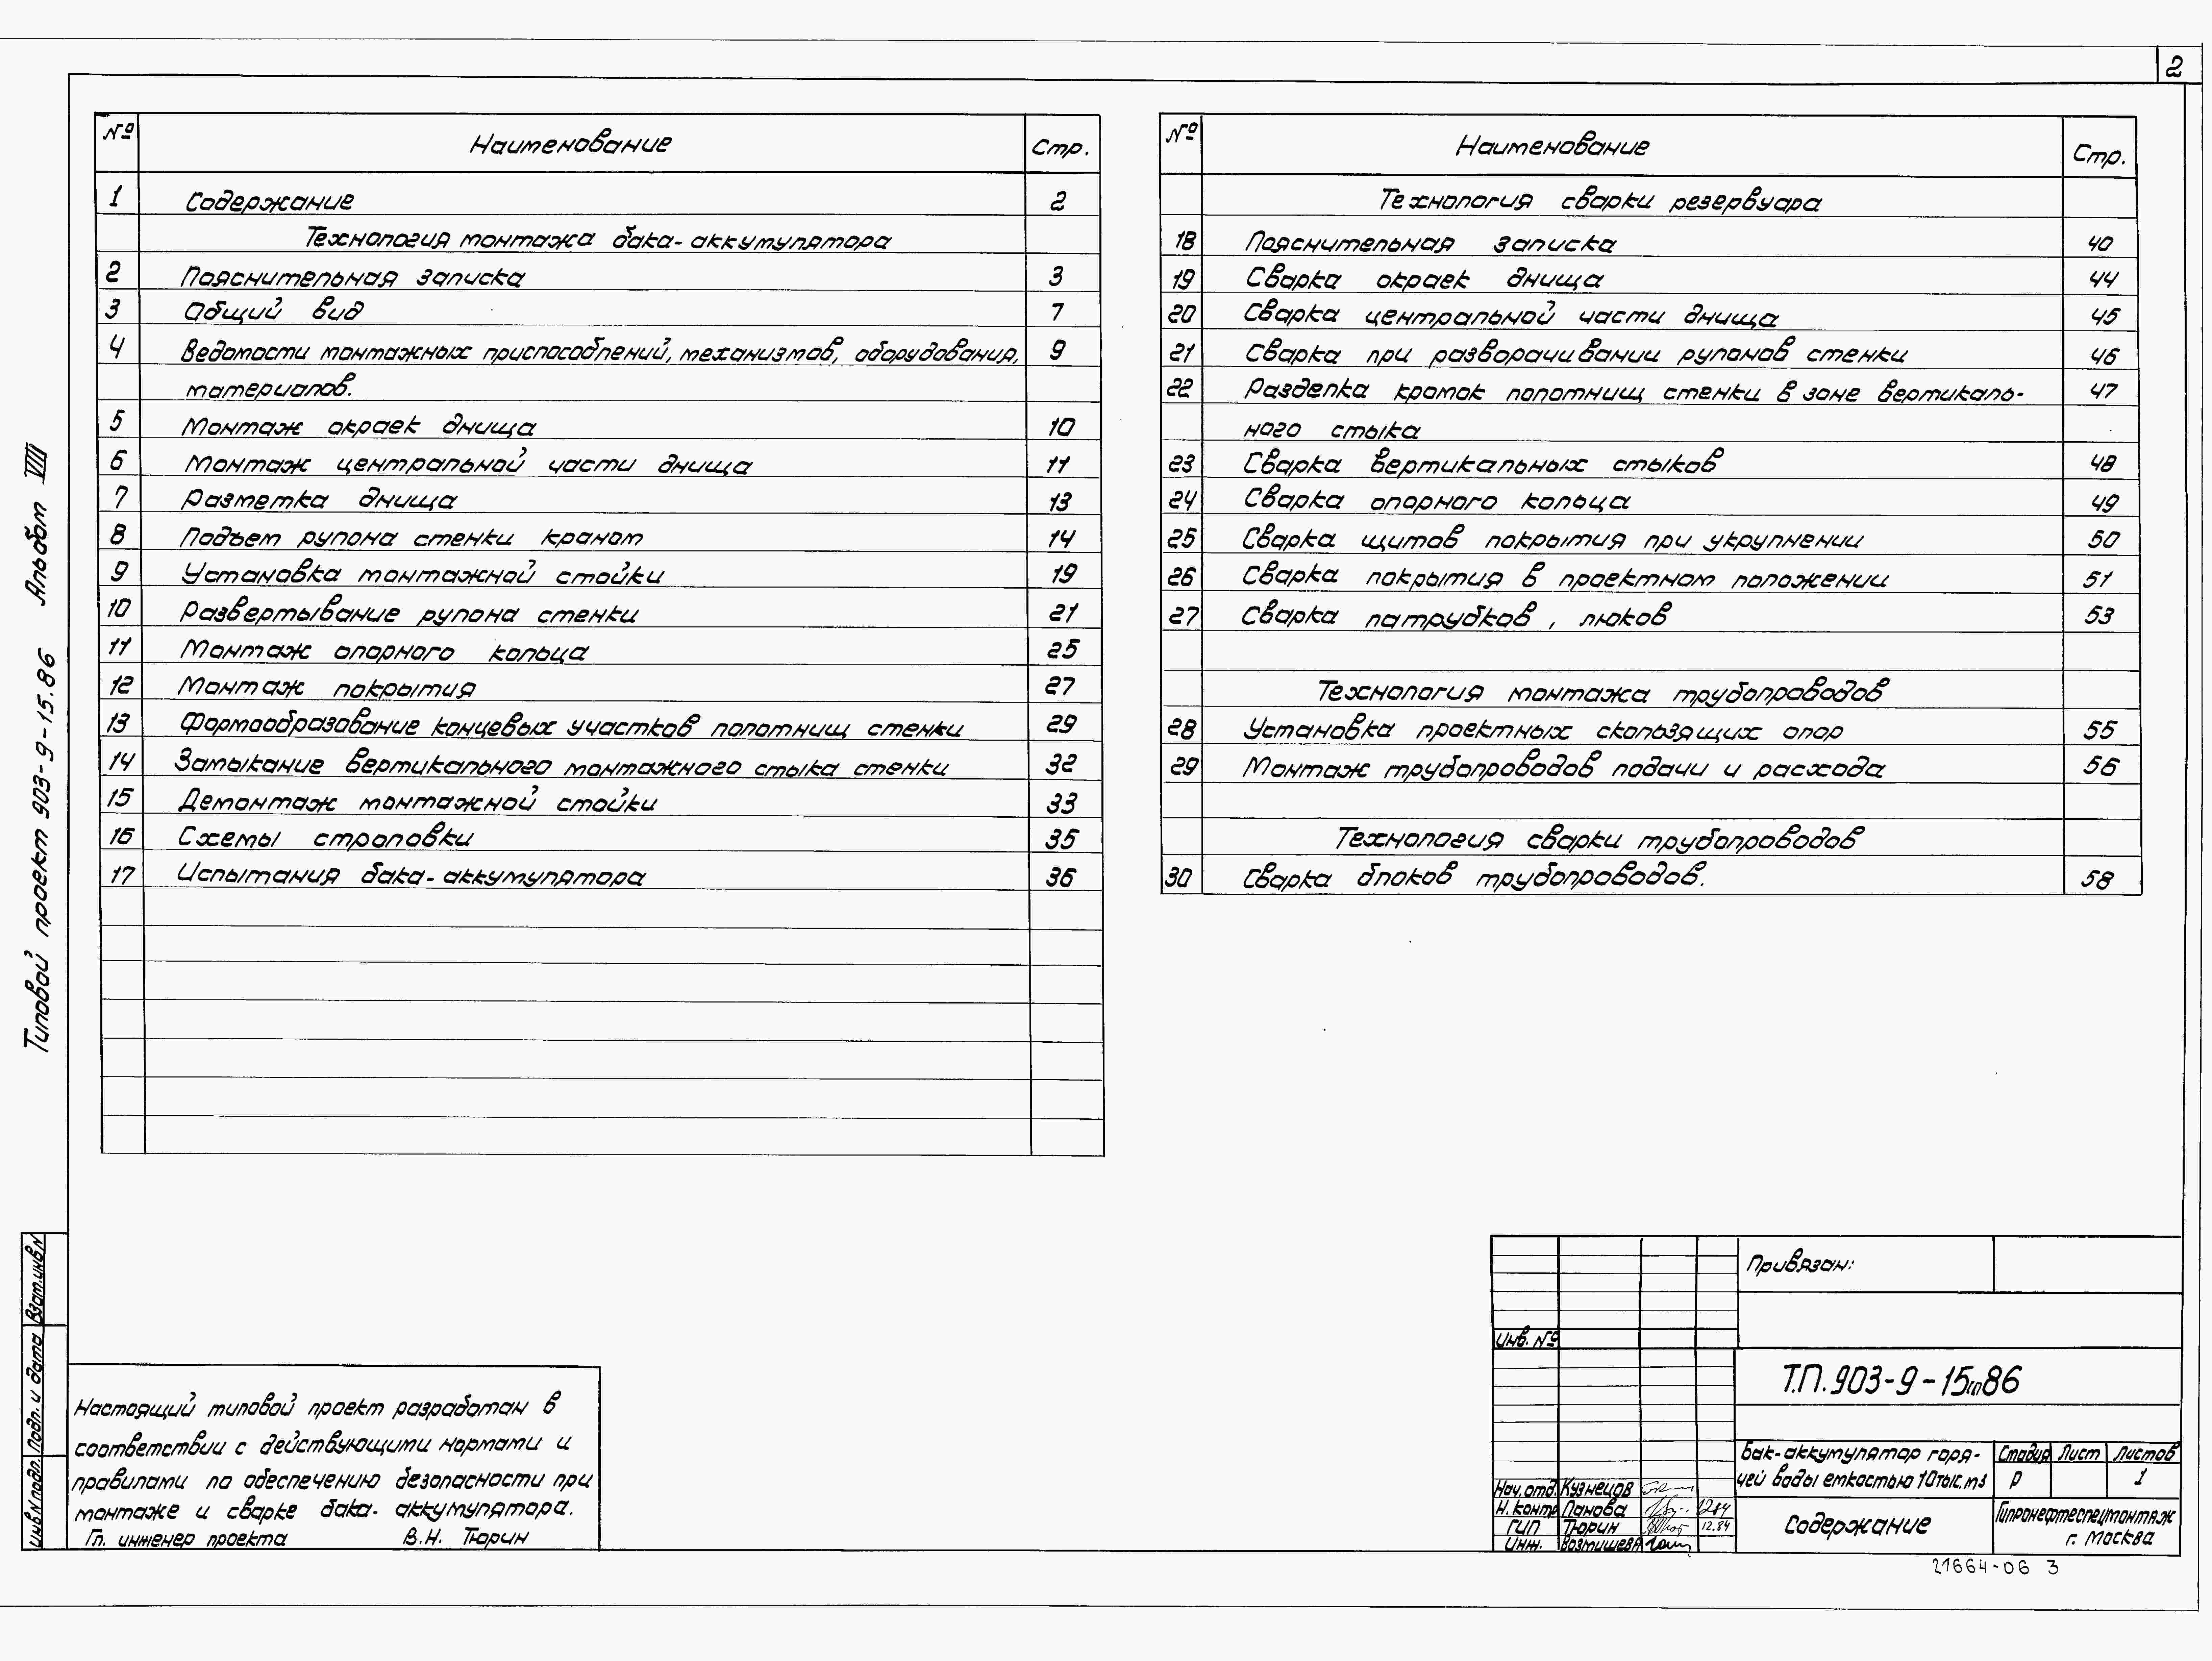 2
№ Наименование Стр.
1 Содержание 2
Технология монтажа бака-аккумулятора
2 Пояснительная записка 3
3 Общий вид 7
4 Ведомости монтажных приспособлений, механизмов, оборудования, 9
материалов.
5 Монтаж окраек днища 10
6 Монтаж центральной части днища 11
7 Разметка днища 13
8 Подъем рулона стенки краном 14
9 Установка монтажной стойки 19
10 Развертывание рулона стенки 21
11 Монтаж опорного кольца 25
12 Монтаж покрытия 27
13 Формообразование концевых участков полотнищ стенки 29
14 Замыкание вертикального монтажного стыка стенки 32
15 Демонтаж монтажной стойки 33
16 Схемы строповки 35
17 Испытания бака-аккумулятора 36
№ Наименование Стр.
Технология сварки резервуара
18 Пояснительная записка 40
19 Сварка окраек днища 44
20 Сварка центральной части днища 45
21 Сварка при разворачивании рулонов стенки 46
22 Разделка кромок полотнищ стенки в зоне вертикаль- 47
ного стыка
23 Сварка вертикальных стыков 48
24 Сварка опорного кольца 49
25 Сварка щитов покрытия при укрупнении 50
26 Сварка покрытия в проектном положении 51
27 Сварка патрубков, люков 53
Технология монтажа трубопроводов
28 Установка проектных скользящих опор 55
29 Монтаж трубопроводов подачи и расхода 56
Технология сварки трубопроводов
30 Сварка блоков трубопроводов. 58
Типовой проект 903-9-15.86 Альбом VIII
Инв.N подл. Подп. и дата Взам.инвN
Настоящий типовой проект разработан в
соответствии с действующими нормами и
правилами по обеспечению безопасности при
монтаже и сварке бака-аккумулятора.
Гл. инженер проекта В.Н. Тюрин
Привязан:
Инв. №
Т.П. 903-9-15сп86
Бак-аккумулятор горя-
чей воды емкостью 10тыс.м3
Стадия Лист Листов
Р 1
Нач.отд. Кузнецов
Н.контр Панова 12.84
ГИП Тюрин 12.84
Инж.
Содержание
Гипронефтеспецмонтаж
г. Москва
21664-06 3